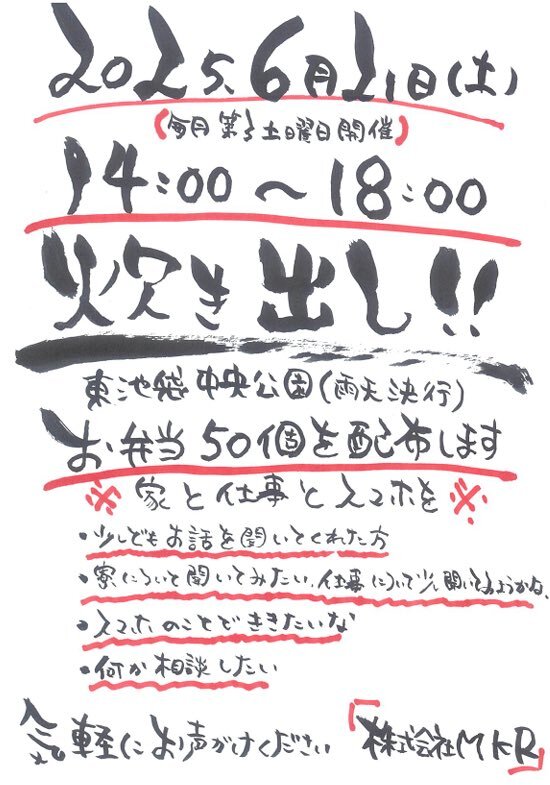 2025.6月21日(土)
(毎月第3土曜日開催)
14:00～18:00
炊き出し!!
東池袋中央公園(雨天決行)
お弁当50個を配布します
※家と仕事とスマホを※
・少しでもお話を聞いてくれた方
・家について聞いてみたい、仕事について少し聞いてみようかな、
・スマホのことでききたいな
・何か相談したい
気軽にお声がけください「株式会社MKR」